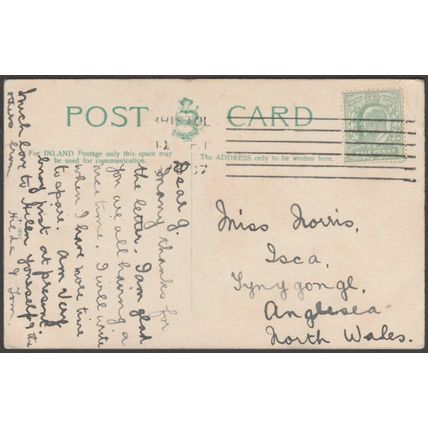 POST CARD
BRISTOL
For INLAND Postage only this space may
be used for communication.
The ADDRESS only to be written here.
Dear G.
Many thanks for
the letter. I am glad
you are all having a
nice time. I will write
when I have more time
to spare. Am very
busy just at present.
Much love to Helen yourself & the
others from
Hilda & Tom
Miss Norris,
Isca,
Tynygongl,
Anglesea
North Wales.